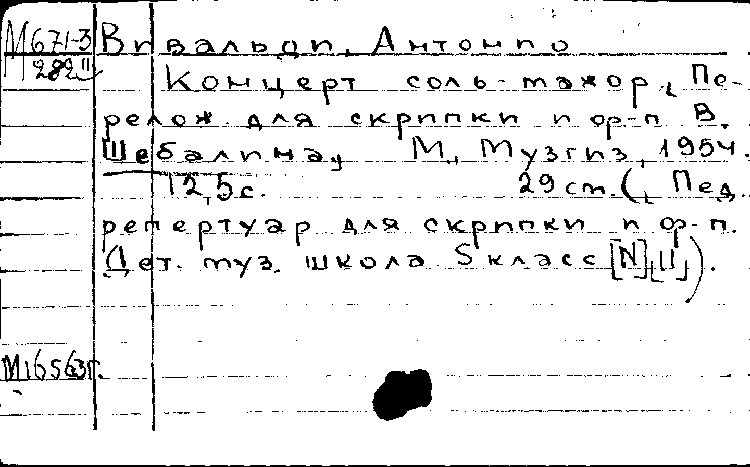 М671-3 Вивальди, Антонио
282 II Концерт соль-мажор. Пе-
релож. для скрипки и ф-п В.
Шебалина, М., Музгиз, 1954.
12,5с. 29cm. (Пед.
репертуар для скрипки и ф-п.
Дет. муз. школа 5 класс [N][II]).
М16563г.